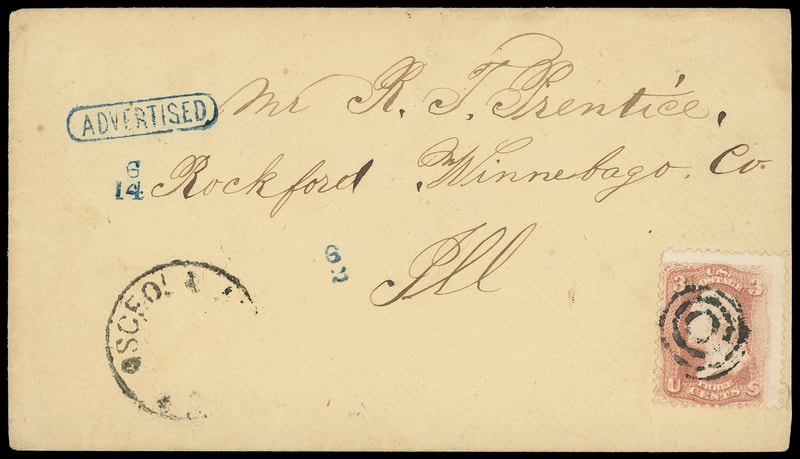 ADVERTISED
Mr R. T. Prentice,
6
14
Rockford Winnebago. Co.
6
2
Ill
OSCEOL
3 U.S. 3
POSTAGE
U THREE S
CENTS